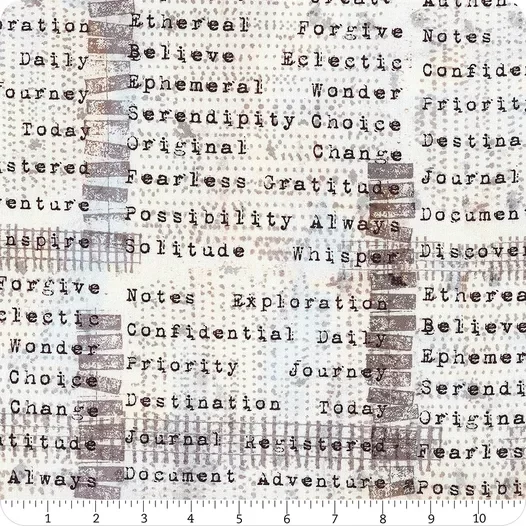 oration Ethereal Forgive Authen
Daily Believe Eclectic Notes
ourney Ephemeral Wonder Confide
Today Serendipity Choice Priorit
stered Original Change Destina
Fearless Gratitude Journal
venture Possibility Always Documen
nspire Solitude Whisper Discover
Forgive Notes Exploration Etherea
clectic Confidential Daily Believe
Wonder Priority Journey Ephemer
Choice Destination Today Serendi
Change Journal Registered Origina
atitude Document Adventure Fearles
Always Possibi
1 2 3 4 5 6 7 8 9 10